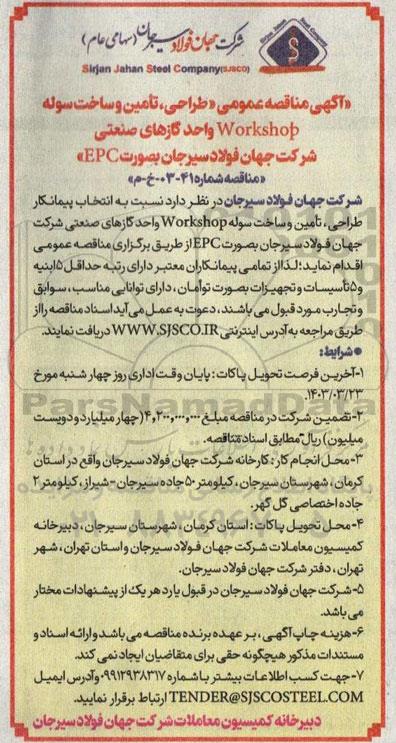 شرکت جهان فولاد سیرجان (سهامی عام)
Sirjan Jahan Steel Company (SJSCO)
«آگهی مناقصه عمومی «طراحی، تأمین و ساخت سوله
Workshop واحد گازهای صنعتی
شرکت جهان فولاد سیرجان بصورت EPC»
«مناقصه شماره ۴۱-۰۳-خ-م»
شرکت جهان فولاد سیرجان در نظر دارد نسبت به انتخاب پیمانکار
طراحی، تأمین و ساخت سوله Workshop واحد گازهای صنعتی شرکت
جهان فولاد سیرجان بصورت EPC از طریق برگزاری مناقصه عمومی
اقدام نماید؛ لذا از تمامی پیمانکاران معتبر دارای رتبه حداقل ۵ ابنیه
و ۵ تأسیسات و تجهیزات بصورت توأمان، دارای توانایی مناسب، سوابق
و تجارب مورد قبول می باشند، دعوت به عمل می آید اسناد مناقصه را از
طریق مراجعه به آدرس اینترنتی WWW.SJSCO.IR دریافت نمایند.
● شرایط:
۱-آخرین فرصت تحویل پاکات: پایان وقت اداری روز چهار شنبه مورخ
۱۴۰۳/۰۳/۲۳
۲-تضمین شرکت در مناقصه مبلغ ۴,۲۰۰,۰۰۰,۰۰۰ (چهار میلیارد و دویست
میلیون) ریال مطابق اسناد مناقصه.
۳-محل انجام کار: کارخانه شرکت جهان فولاد سیرجان واقع در استان
کرمان، شهرستان سیرجان، کیلومتر ۵۰ جاده سیرجان - شیراز، کیلومتر ۲
جاده اختصاصی گل گهر.
۴-محل تحویل پاکات: استان کرمان، شهرستان سیرجان، دبیرخانه
کمیسیون معاملات شرکت جهان فولاد سیرجان و استان تهران، شهر
تهران، دفتر شرکت جهان فولاد سیرجان.
۵-شرکت جهان فولاد سیرجان در قبول یا رد هر یک از پیشنهادات مختار
می باشد.
۶-هزینه چاپ آگهی، بر عهده برنده مناقصه می باشد و ارائه اسناد و
مستندات مذکور هیچگونه حقی برای متقاضیان ایجاد نمی کند.
۷-جهت کسب اطلاعات بیشتر با شماره ۰۹۹۱۲۹۳۸۳۱۷ و آدرس ایمیل
TENDER@SJSCOSTEEL.COM ارتباط برقرار نمایید.
دبیرخانه کمیسیون معاملات شرکت جهان فولاد سیرجان
ParsNamadData